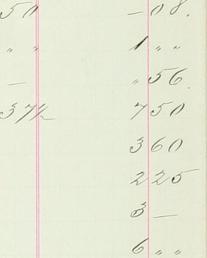 50 - 08.
" " 1 " "
- " 56
37½ 7 50
3 60
2 25
3 -
6 " "